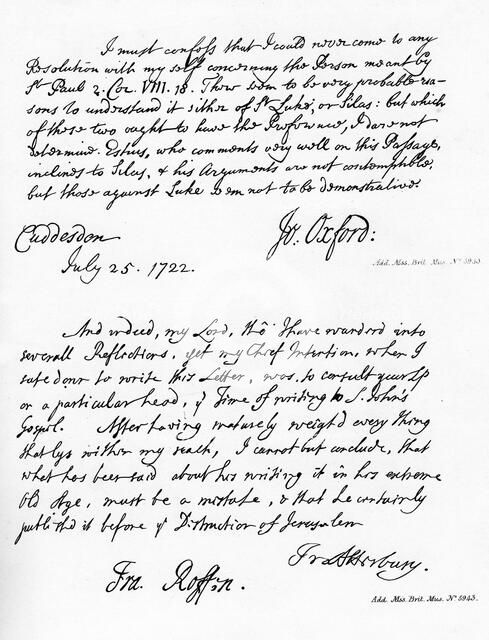 I must confess that I could never come to any
Resolution with my self concerning the Person meant by
St Paul 2. Cor. VIII. 18. There seem to be very probable rea-
sons to understand it either of St Luke, or Silas: but which
of these two ought to have the Preference, I dare not
determine. Estius, who comments very well on this Passage,
inclines to Silas, & his Arguments are not contemptible,
but those against Luke seem not to be demonstrative.
Cuddesdon
July 25. 1722.
Jo. Oxford:
Add. Mss. Brit. Mus. No 5943.
And indeed, my Lord, tho' I have wander'd into
severall Reflections, yet my Chief Intention, when I
sate down to write this Letter, was, to consult your LP
on a particular head, ye Time of writing to S. John's
Gospel. After having maturely weigh'd every thing
that lys within my reach, I cannot but conclude, that
what has been said about his writing it in his extreme
Old Age, must be a mistake, & that he certainly
publish'd it before ye Destruction of Jerusalem
Fr Atterbury.
Fra. Roffen.
Add. Mss. Brit. Mus. No 5943.